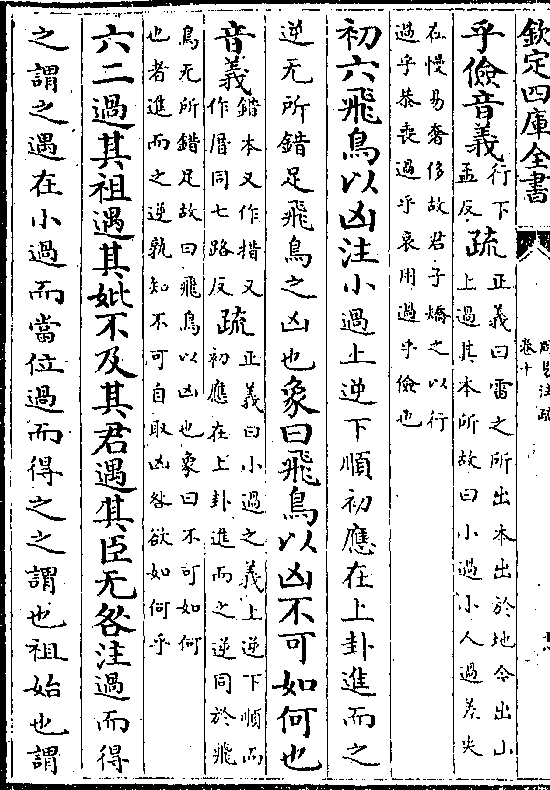 欽定四庫全書
周易注疏
卷十
乎儉音義
行下
孟反
疏
正義曰雷之所出本出於地今出山
上過其本所故曰小過小人過差失
在慢易奢侈故君子矯之以行
過乎恭喪過乎哀用過乎儉也
初六飛鳥以凶注小過上逆下順初應在上卦進而之
逆无所錯足飛鳥之凶也象曰飛鳥以凶不可如何也
音義
錯本又作措又
作厝同七路反
疏
正義曰小過之義上逆下順而
初應在上卦進而之逆同於飛
鳥无所錯足故曰飛鳥以凶也象曰不可如何
也者進而之逆孰知不可自取凶咎欲如何乎
六二過其祖遇其妣不及其君遇其臣无咎注過而得
之謂之遇在小過而當位過而得之之謂也祖始也謂